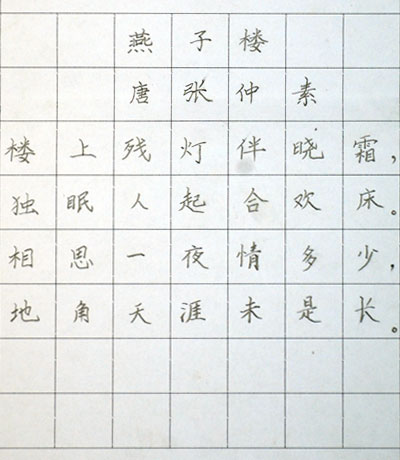 燕子楼
唐张仲素
楼上残灯伴晓霜，
独眠人起合欢床。
相思一夜情多少，
地角天涯未是长。